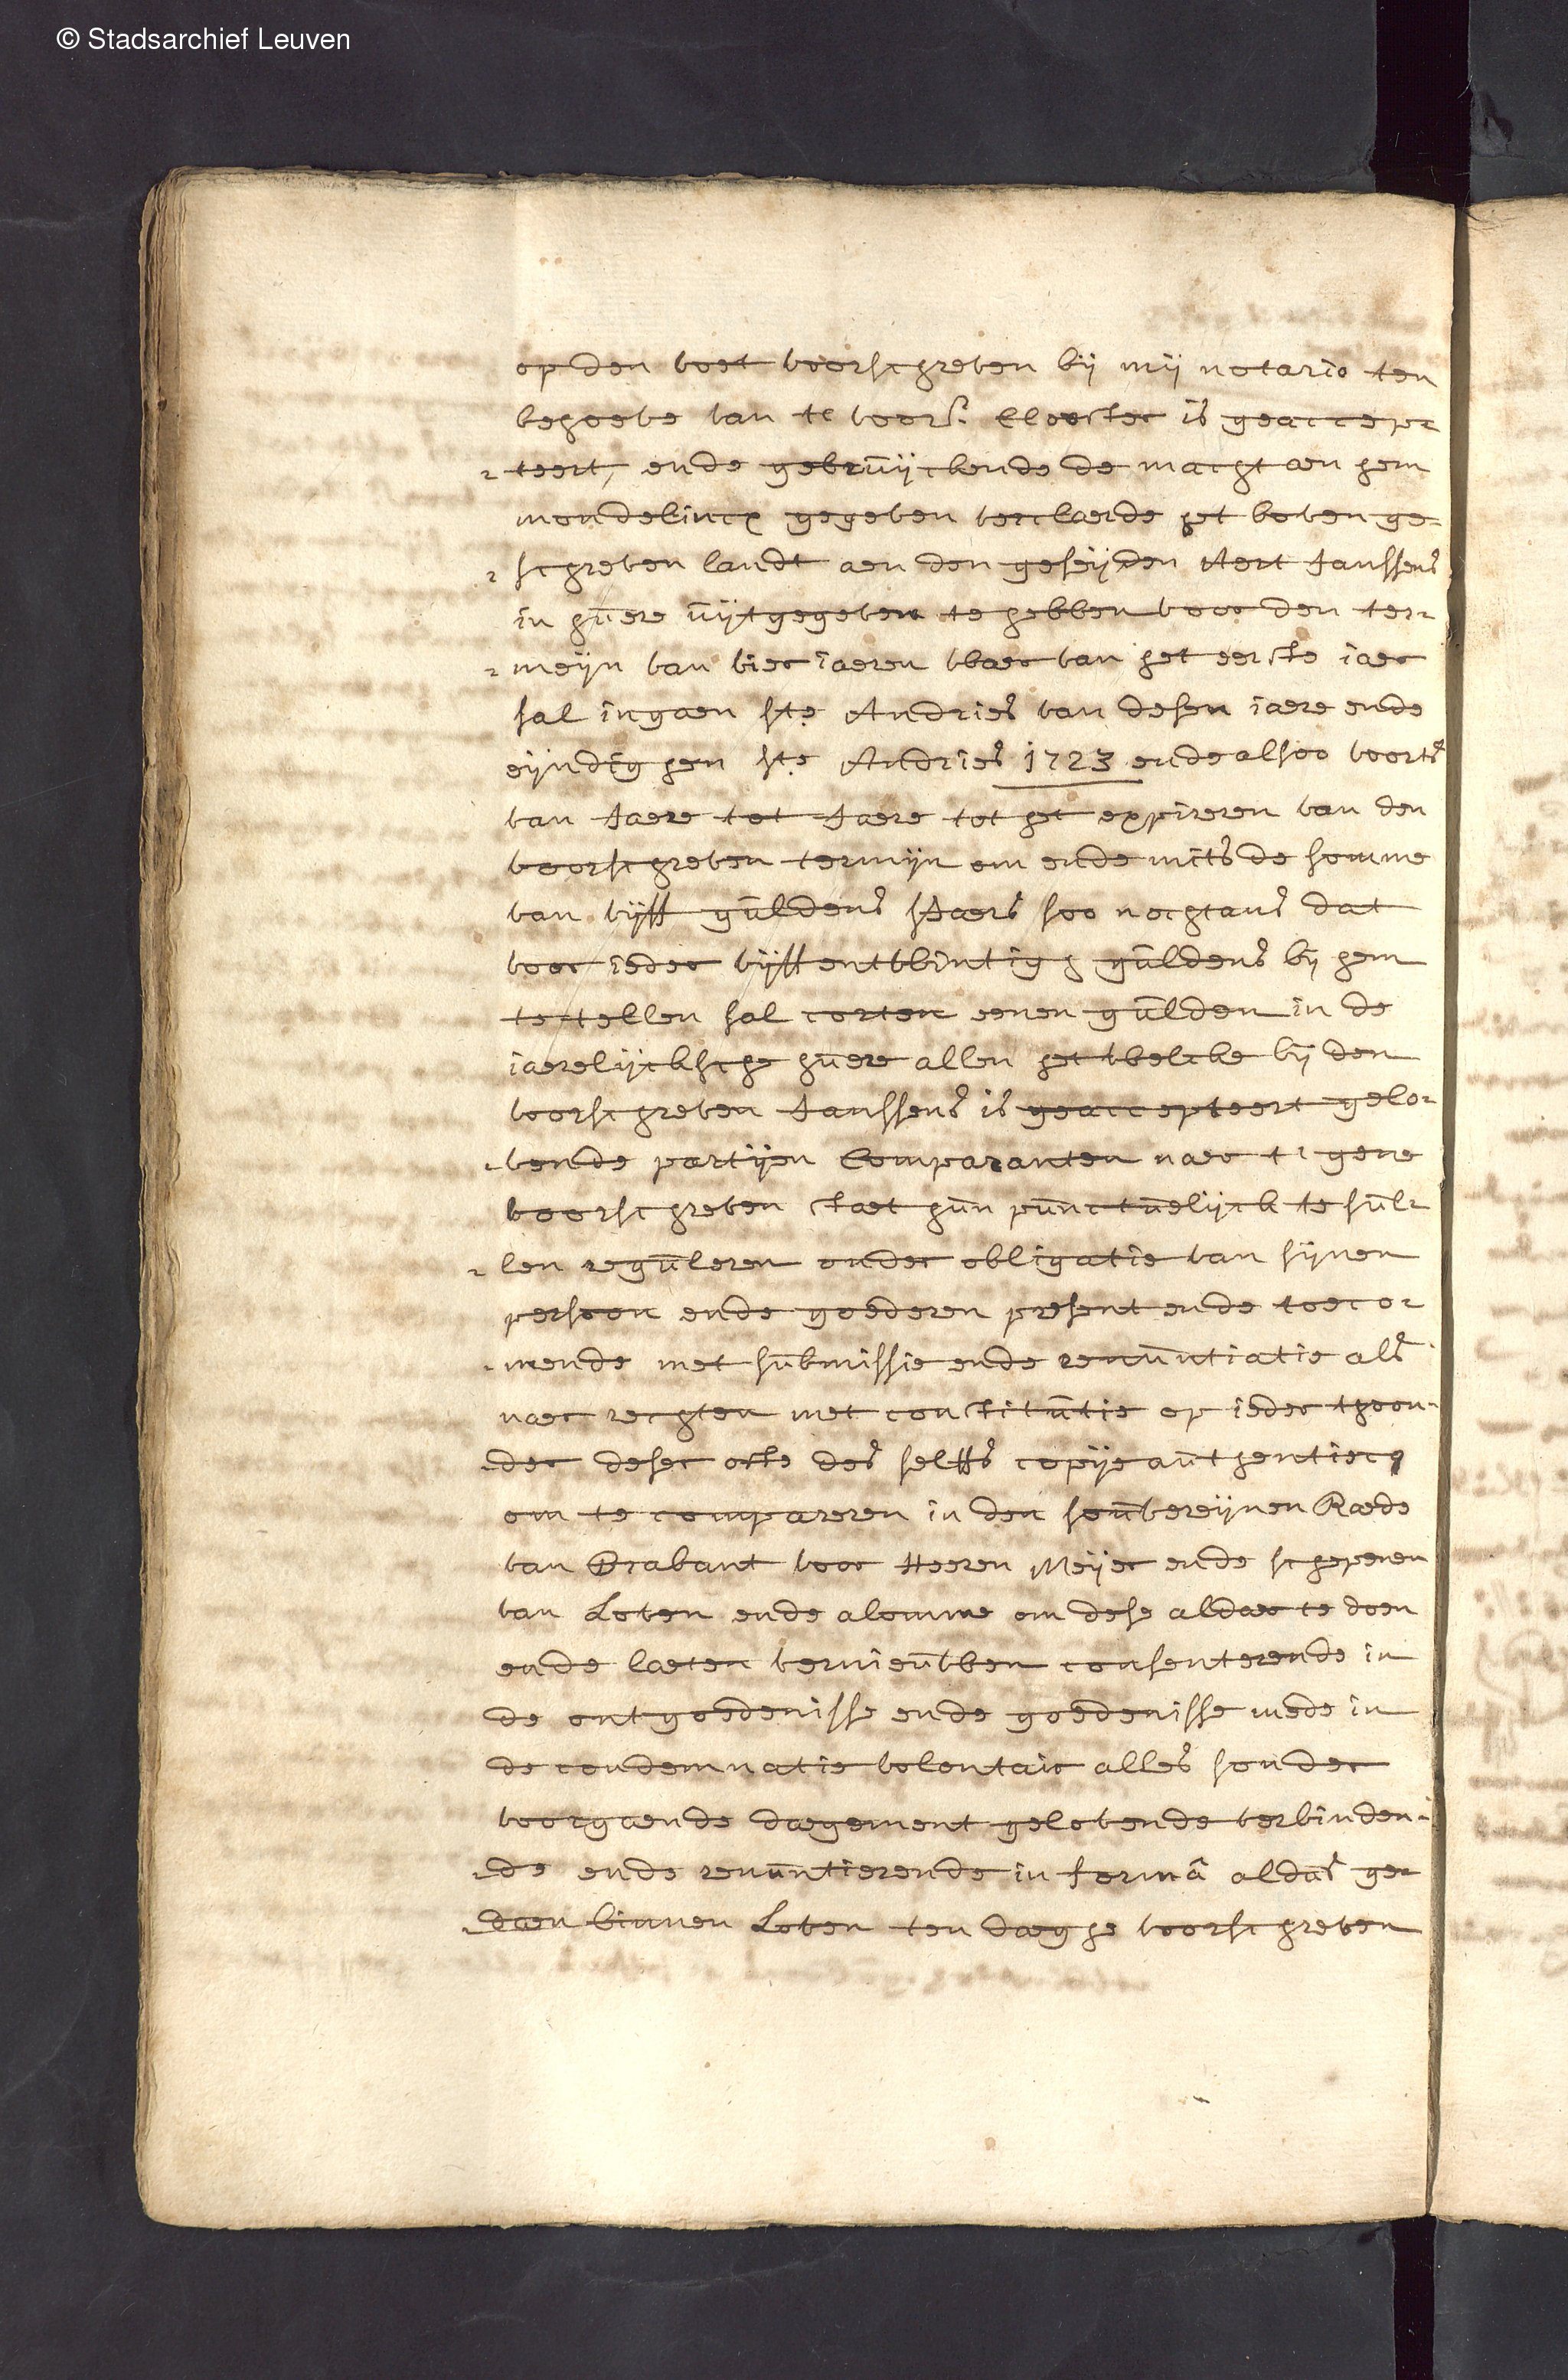 © Stadsarchief Leuven
op den voet voorschreven bij mij notario ten
behoeve van te voors. Clooster is geaccep-
-teert, ende gebruijckende de macht aen hem
mondelincx gegeven verclaerde het boven ge-
-schreven landt aen den geseijden Aert Janssens
in huere uijtgegeven te hebben voor den ter-
-meijn van vier iaeren waer van het eerste iaer
sal ingaen ste Andries van desen iaere ende
eijndighen ste Andries 1723 ende alsoo voorts
van Jaere tot Jaere tot het expireren van den
voorschreven termijn om ende mits de somme
van vijff guldens sJaers soo nochtans dat
voor ieder vijffentwintigh guldens bij hem
te tellen sal corten eenen gulden in de
iaerelijcksche huere allen het welcke bij den
voorschreven Janssens is geaccepteert gelo-
-vende partijen Comparanten naer t' gene
voorschreven staet hun punctuelijck te sul-
-len reguleren onder obligatie van sijnen
persoon ende goederen present ende toeco-
-mende met submissie ende renuntiatie als
naer rechten met constitutie op ieder thoon-
-der deser ofte des selffs copije authentiecq
om te compareren in den souvereijnen Raede
van Brabant voor Heeren Meijer ende schepenen
van Loven ende alomme om dese aldaer te doen
ende laeten vernieuwen consenterende in
de ontgoedenisse ende goedenisse mede in
de condemnatie volontair alles sonder
voorgaende daegement gelovende verbinden-
-de ende renuntierende in formâ aldus ge-
-daen binnen Loven ten daeghe voorschreven